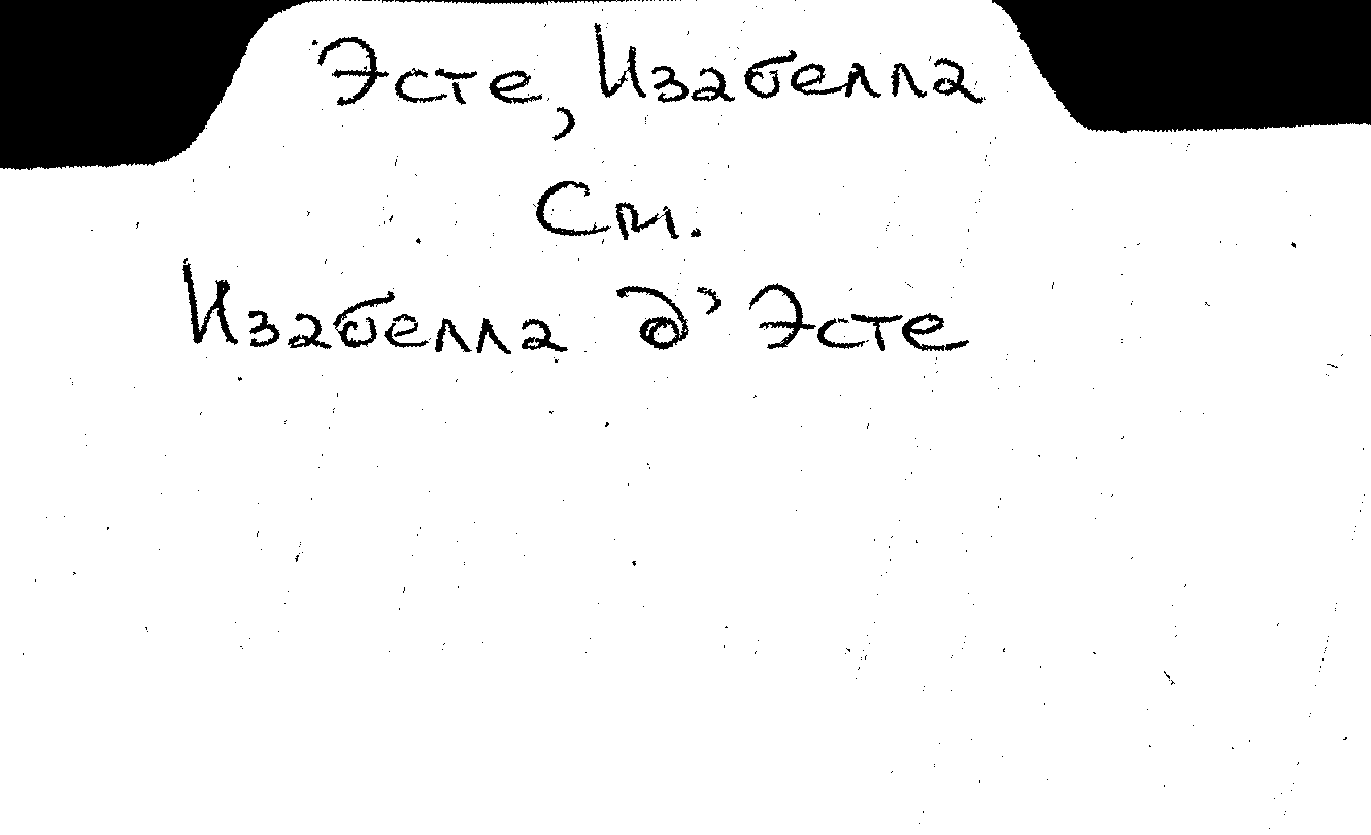 Эсте, Изабелла
См.
Изабелла д'Эсте